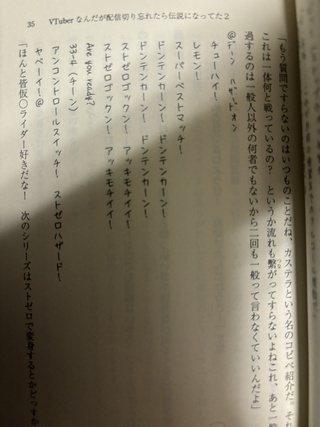 35　VTuber なんだが配信切り忘れたら伝説になってた 2
「もう質問ですらないのはいつものことだね、カステラという名のコピペ紹介だ。それ
これは一体何と戦っているの？　というか流れも繋がってすらないよねこれ、あと一般
過するのは一般人以外の何者でもないから二回も一般って言わなくていいんだよ」
@デン　ハザードオン
チューハイ！
レモン！
スーパーベストマッチ！
ドンテンカーン！　ドンテンカーン！
ドンテンカーン！　ドンテンカーン！
ストゼロゴックン！　アッキモチイイ！
ストゼロゴックン！　アッキモチイイ！
Are you ready?
33-4（チーン）
アンコントロールスイッチ！　ストゼロハザード！
ヤベーイ！@
「ほんと皆仮〇ライダー好きだな！　次のシリーズはストゼロで変身するとかどっすか